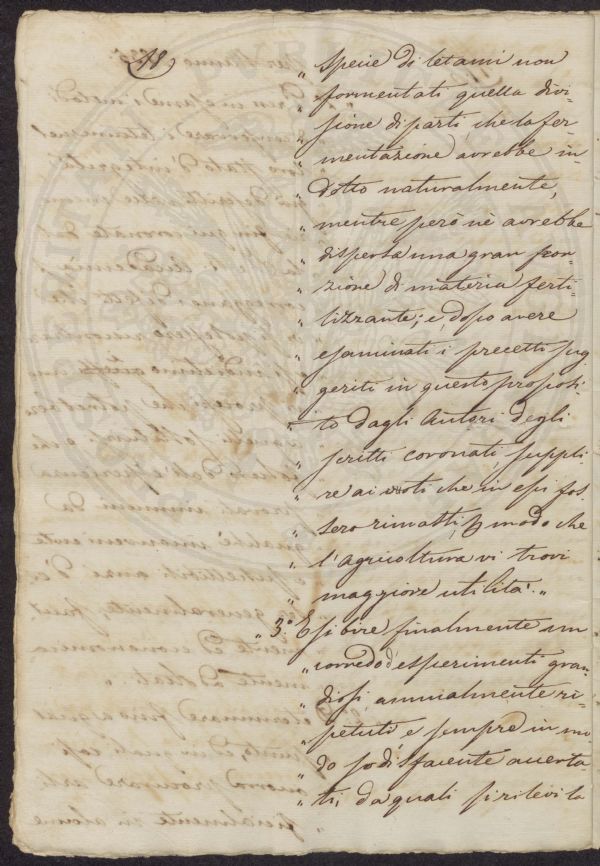 18
„ specie di letami non
„ formentati quella divi-
„ sione di parti, che la fer-
„ mentazione avrebbe in
„ dotto naturalmente,
„ mentre però nè avrebbe
„ dispersa una gran por-
„ zione di materia ferti-
„ lizzante; e, dopo avere
„ esaminati i precetti sug
„ geriti in questo proposi-
„ to dagli Autori degli
„ scritti coronati, suppli-
„ re ai voti che in essi fos
„ sero rimasti, modo che
„ l'agricoltura vi trovi
„ maggiore utilità. „
„ 3.° Esibire finalmente un
„ corredo d'esperimenti gran
„ diosi, annualmente ri-
„ petuti, e sempre in mo
„ do sodisfacente accerta-
„ ti, da quali si rilevi la